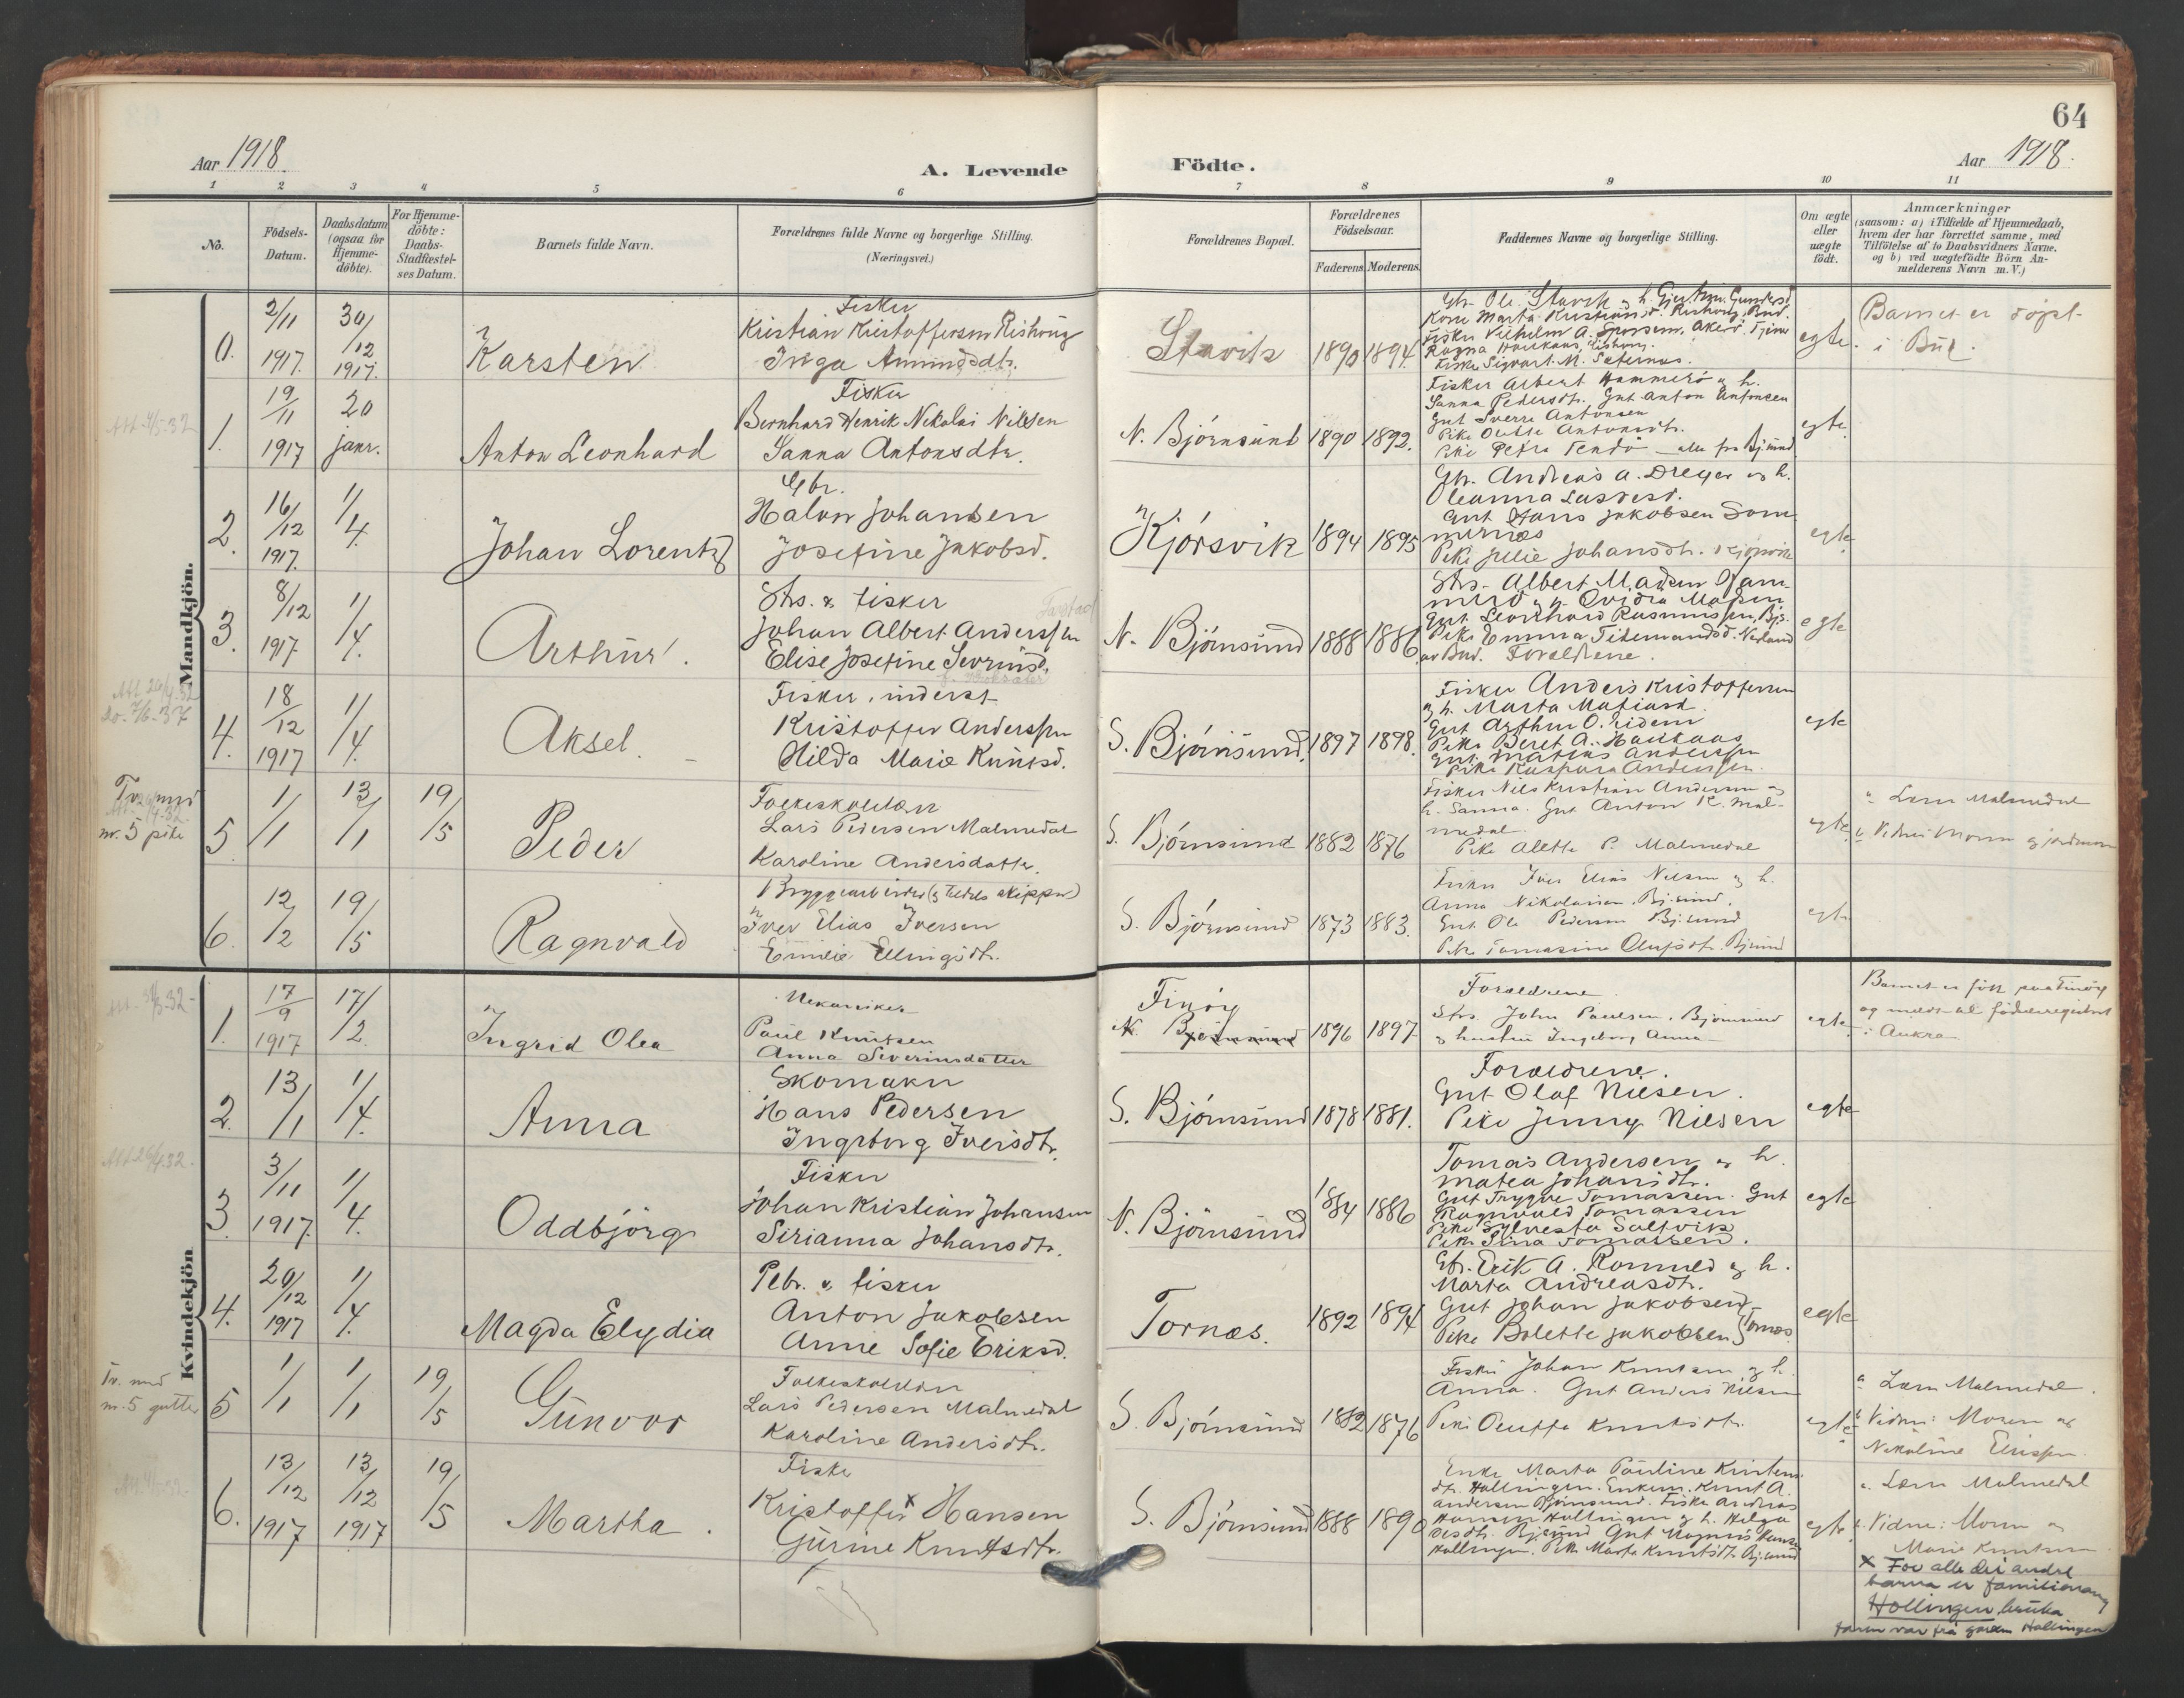 64
Aar 1918.
A. Levende
Födte.
Aar 1918.
1 2 3 4 5 6 7 8 9 10 11
No.
Födsels-
Datum.
Daabsdatum
(ogsaa for
Hjemme-
döbte).
For Hjemme-
döbte:
Daabs-
Stadfæstel-
ses Datum.
Barnets fulde Navn.
Forældrenes fulde Navne og borgerlige Stilling.
(Næringsvei.)
Forældrenes Bopæl.
Forældrenes
Födselsaar.
Faderens. Moderens.
Faddernes Navne og borgerlige Stilling.
Om ægte
eller
uægte
födt.
Anmærkninger
(saasom: a) i Tilfælde af Hjemmedaab,
hvem der har forrettet samme, med
Tilföielse af to Daabsvidners Navne,
og b) ved uægtefödte Börn An-
melderens Navn m. V.)
Mandkjön.
0. 2/11 1917. 30/12 1917.
Karsten
Fisker
Kristian Kristoffersen Rishaug
Inga Amundsdtr.
Stavik 1890 1894.
Gbr. Ole Stavik og h.
egte.
Barnet er döpt
i Bud.
Att 4/5-32
1. 19/11 1917 20 janr.
Anton Leonhard
Fisker
Bernhard Henrik Nikolai Nilsen
Sanna Antonsdtr.
N. Björnsund 1890 1892.
Fisker Albert Hammerö og h.
Sanna Pedersdtr. Gut Anton Antonsen
Gut Sverre Antonsen
Pike Antonsdtr.
Pike Petra - alle fra Bj.sund
egte
2. 16/12 1917. 1/4.
Johan Lorentz
Gbr.
Halvor Johansen
Josefine Jakobsd.
Kjörsvik 1894 1895
Gbr. Andreas A. Dreyer og h.
Oleanna Lassesd.
Gut Hans Jakobsen Dom
mernes
Pike Julie Johansdtr. Kjörsvik
egte
3. 8/12 1917 1/4.
Arthur.
Strs. & fisker
Johan Albert Anderssen
Elise Josefine Sevrinsd.
N. Björnsund 1888 1886
Strs. Albert Madsen Ham
merö og h.
Gut Leonhard Rasmussen, Bjs.
Pike Emma Tidemandsd. Nerland
av Bud. Foreldrene.
egte
Att 26/4 32
Do. 7/6-37
4. 18/12 1917 1/4.
Aksel.
Fisker, inderst
Kristoffer Anderssen
Hilda Marie Knutsd.
S. Björnsund. 1897 1898.
Fisker Anders Kristoffersen
og h. Marta Matiasd.
Gut Arthur O.
Pike Beret A. Haukaas
Gut Matias Anderssen
Pike Kaspara Anderssen.
egte
Tv. med
nr. 5 pike
5. 1/1 13/1 19/5
Peder
Folkeskolelærer
Lars Pedersen Malmedal
Karoline Andersdatter.
S. Björnsund 1882 1876
Fisker Nils Kristian Andersen og
h. Sanna. Gut Anton K. Mal-
medal.
Pike Alette P. Malmedal
egte
a. Lærer Malmedal
b. Vidner: Moren og jordmoren
6. 12/2 19/5
Ragnvald
Bryggearbeider (og tildels skipper)
Iver Elias Iversen
Emilie Ellingsdtr.
S. Björnsund 1873 1883.
Fisker Iver Elias Nilsen og h.
Anna Nikolaisen, Bj.sund.
Gut Ole Pedersen Bj.sund
Pike Tomasine Olufsdtr. Bj.sund
egte
Kvindekjön
1. 17/9 1917 17/2.
Ingrid Olea
Mekaniker
Paul Knutsen
Anna Severinsdatter
Finöy
N. Björnsund 1896 1897
Foreldrene
Strs. John Paulsen, Björnsund
og hustru Ingeborg Anna
egte
Barnet er född paa Finöy
og meldt al födselregistret
i Aukra
2. 13/1 1/4.
Anna
Skomaker
Hans Pedersen
Ingeborg Iversdtr.
S. Björnsund 1878 1881.
Foreldrene.
Gut Olaf Nilsen.
Pike Jenny Nilsen
egte
Att 26/4 32.
3. 3/11 1917. 1/4.
Oddbjörg
Fisker
Johan Kristian Johansen
Sirianna Johansdtr.
N. Björnsund 1884 1886
Tomas Andersen og h.
Matea Johansdtr.
Gut Trygve Tomassen. Gut
Ragnvald Tomassen
Pike Sylvesta Saltvik
Pike Sina Tomassen.
egte
4. 29/12 1917 1/4.
Magda Elydia
Pebr. & fisker
Anton Jakobsen
Anne Sofie Eriksd.
Tornes. 1892 1894
Gbr. Erik A. Romuld og h.
Marta Andreasdtr.
Gut Johan Jakobsen
Pike Bolette Jakobsen } Tornes.
egte
Tv. med
nr. 5 gutter
5 1/1 1/1 19/5
Gunvor
Folkeskolelærer
Lars Pedersen Malmedal
Karoline Andersdtr.
S. Björnsund 1882 1876
Fisker Johan Knutsen og h.
Anna. Gut Anders Nilsen
Pike Knutsdtr.
egte
a. Lærer Malmedal.
b. Vidner: Moren og
Nikoline
6. 13/12 1917 13/12 1917 19/5
Martha.
Fisker
Kristoffer x Hansen
Gurine Knutsdtr.
S. Björnsund 1888 1890
Enke Marta Pauline Kristens
dtr. Hollingen. Enkem. Knut A.
Andersen Björnsund. Fisker Andreas
Hansen Hollingen og h. Helga
dtr. Bj.sund Gut Magnus Hansen
Hollingen. Pike Marta Knutsdtr. Bj.sund
egte
a. Lærer Malmedal
b. Vidner: Moren og
Marie Knutsen.
x For alle dei andre
barna er familienamn
Hollingen bruka
faren var frå garden Hollingen